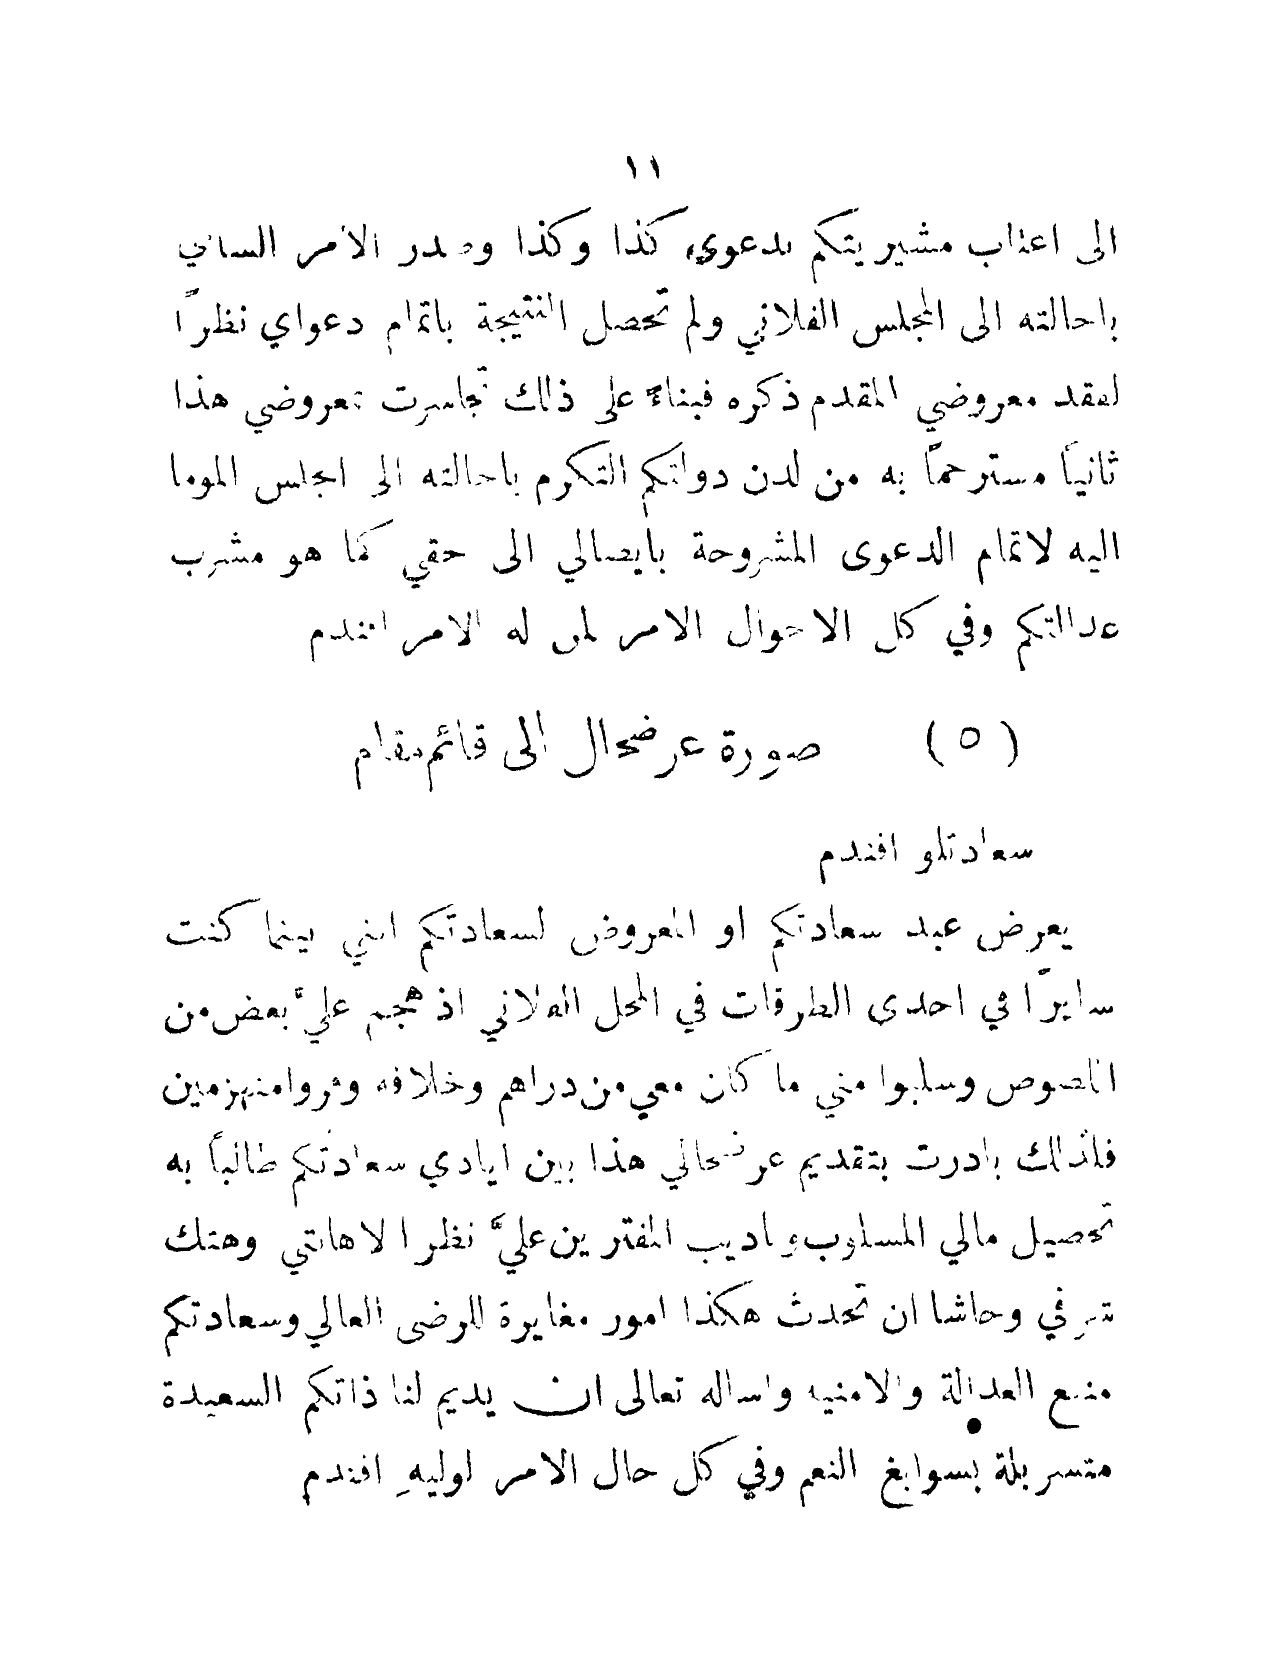 ١١
الى اعتاب مشيريتكم بدعوى كذا وكذا وصدر الامر السامي
باحالته الى المجلس الفلاني ولم تحصل النتيجة باتمام دعواي نظرًا
لفقد معروضي المقدم ذكره فبناءً على ذلك تجاسرت بعروضي هذا
ثانياً مسترحمًا به من لدن دولتكم التكرم باحالته الى المجلس الموما
اليه لاتمام الدعوى المشروحة بايصالي الى حقي كما هو مشرب
عدالتكم وفي كل الاحوال الامر لمن له الامر افندم
(٥) صورة عرضحال الى قائممقام
سعادتلو افندم
يعرض عبد سعادتكم او المعروض لسعادتكم انني بينما كنت
سايرًا في احدى الطرقات في المحل الفلاني اذ هجم عليَّ بعض من
اللصوص وسلبوا مني ما كان معي من دراهم وخلافه وفروا منهزمين
فلذلك بادرت بتقديم عرضحالي هذا بين ايادي سعادتكم طالباً به
تحصيل مالي المسلوب وتاديب المفترين عليَّ نظرا لاهانتي وهتك
شرفي وحاشا ان تحدث هكذا امور مغايرة للرضى العالي وسعادتكم
منبع العدالة والامنيه واساله تعالى ان يديم لنا ذاتكم السعيدة
متسربلة بسوابغ النعم وفي كل حال الامر لوليهِ افندم